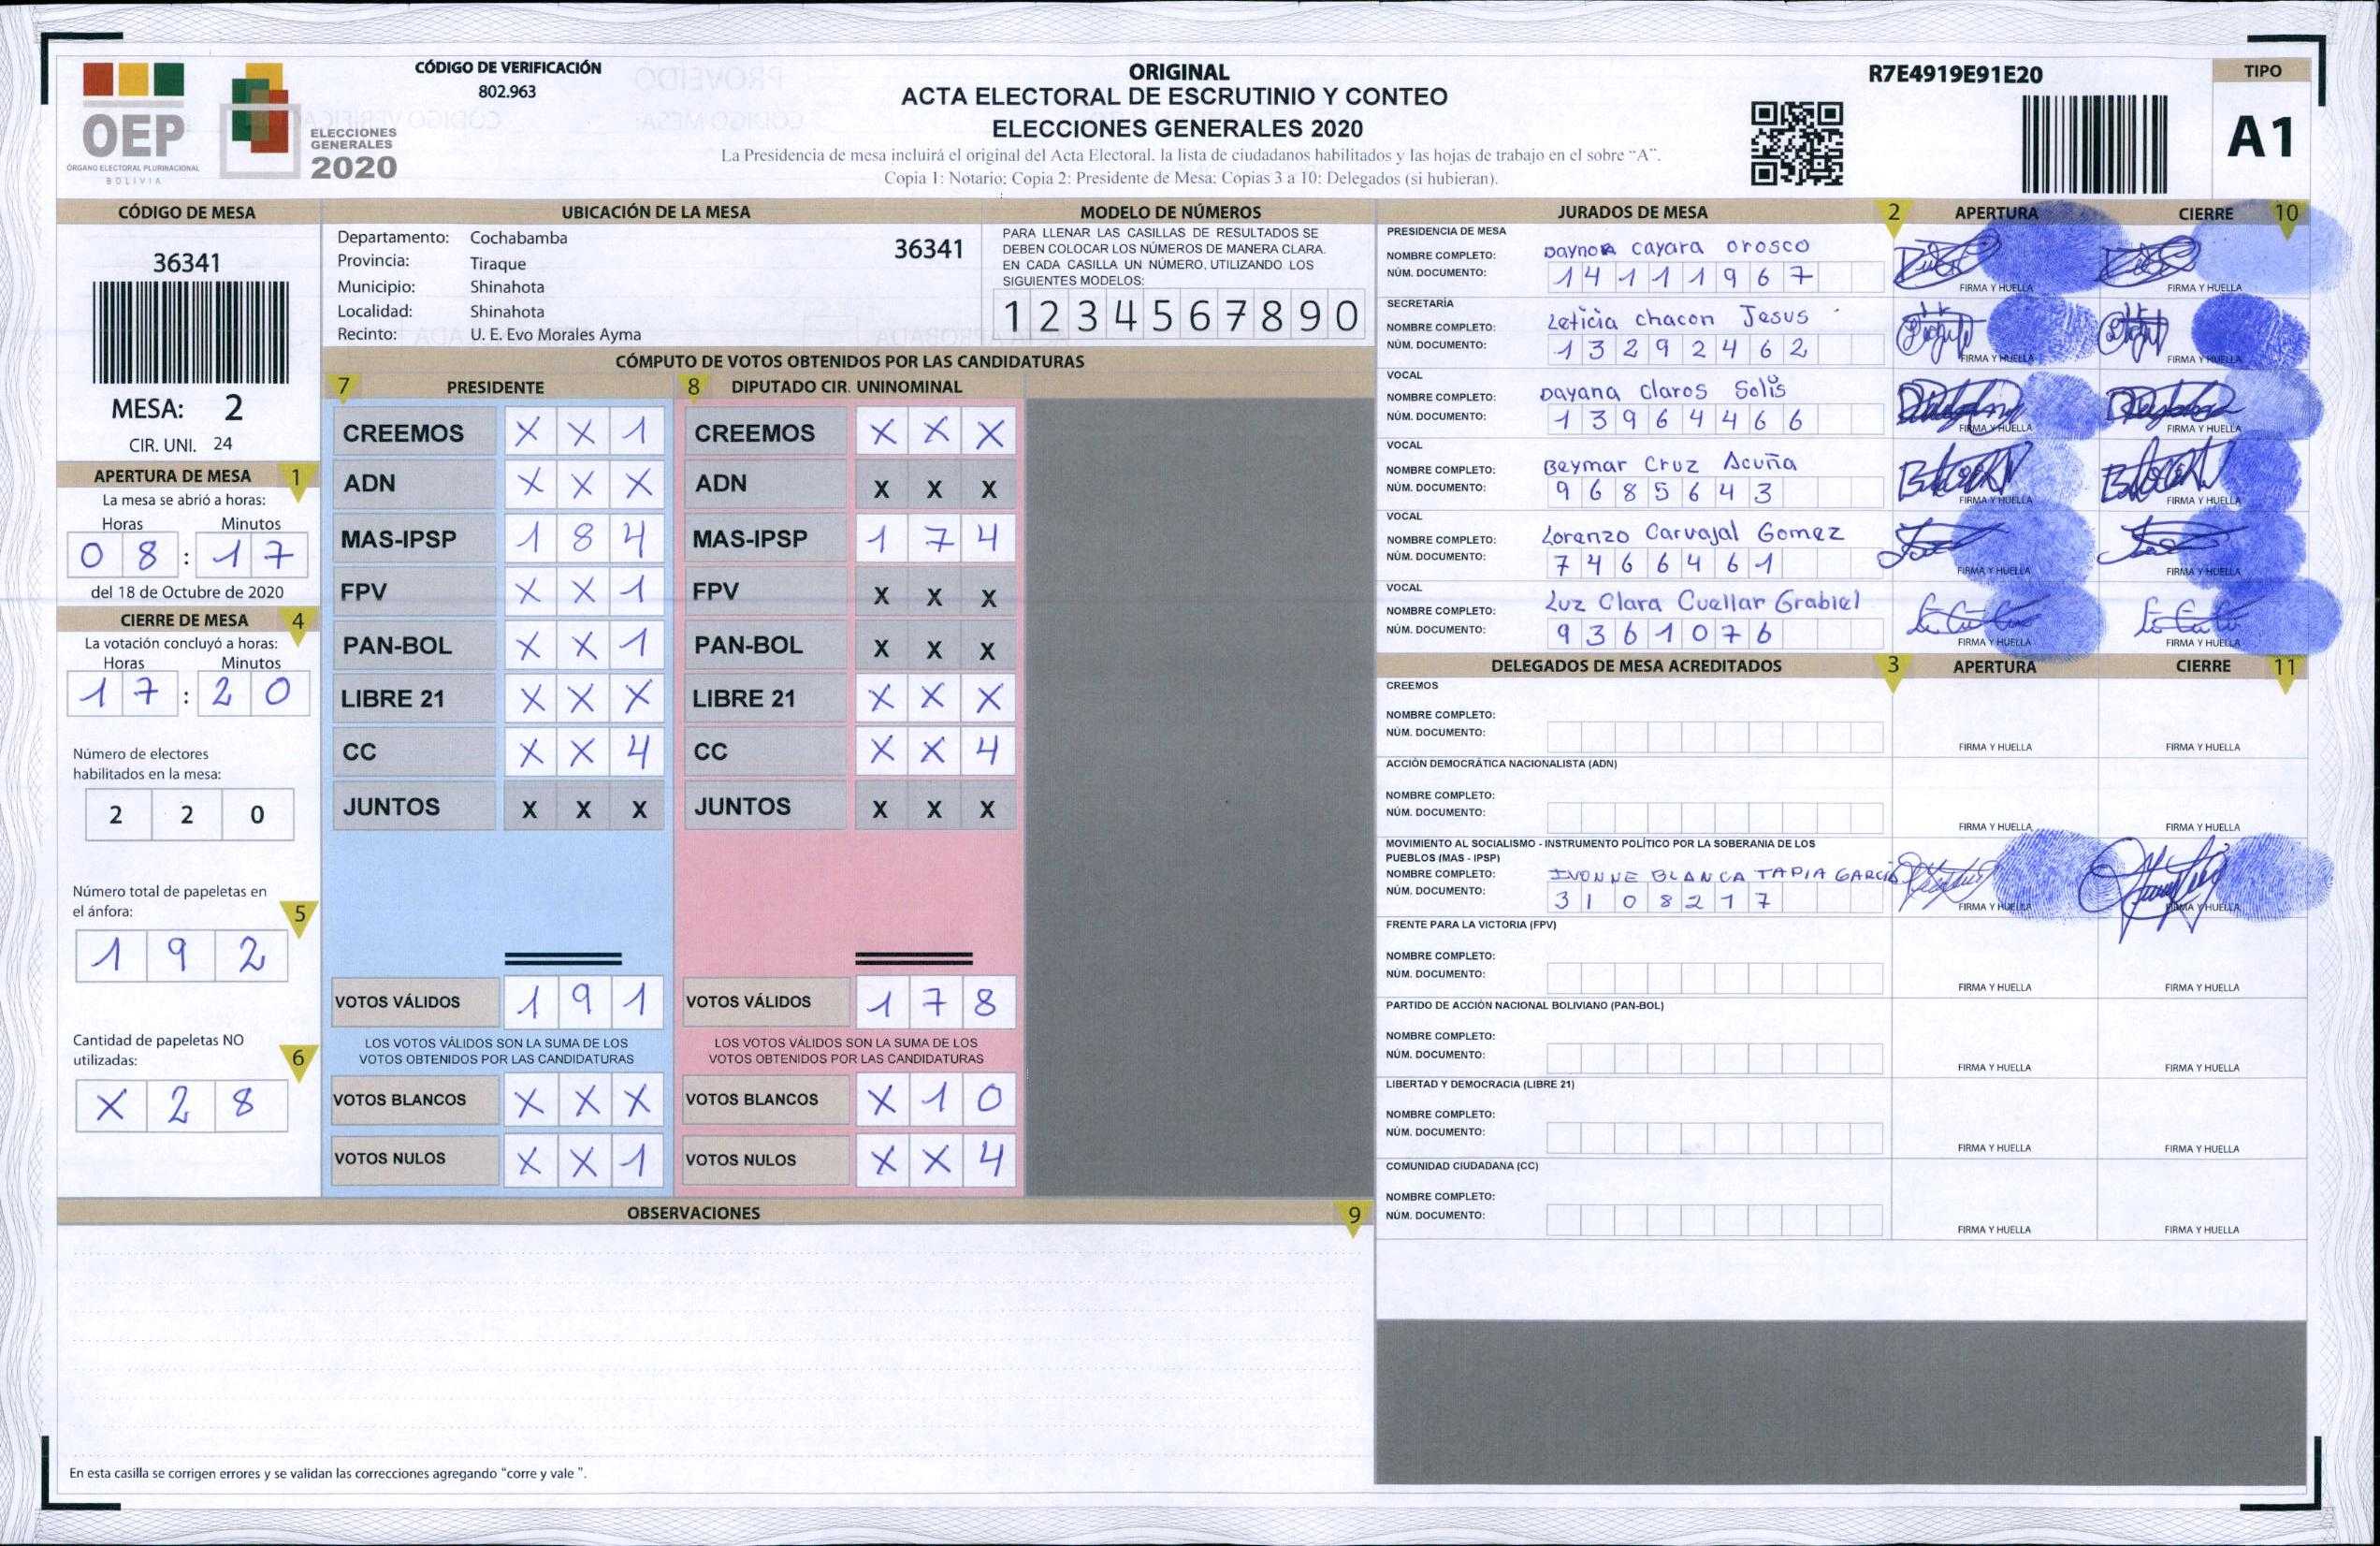 OEP
ÓRGANO ELECTORAL PLURINACIONAL
BOLIVIA
ELECCIONES
GENERALES
2020
CÓDIGO DE VERIFICACIÓN
802.963
ORIGINAL
ACTA ELECTORAL DE ESCRUTINIO Y CONTEO
ELECCIONES GENERALES 2020
La Presidencia de mesa incluirá el original del Acta Electoral, la lista de ciudadanos habilitados y las hojas de trabajo en el sobre "A".
Copia 1: Notario; Copia 2: Presidente de Mesa; Copias 3 a 10: Delegados (si hubieran).
R7E4919E91E20
TIPO
A1
CÓDIGO DE MESA
36341
MESA: 2
CIR. UNI. 24
APERTURA DE MESA 1
La mesa se abrió a horas:
Horas Minutos
0 8 : 1 7
del 18 de Octubre de 2020
CIERRE DE MESA 4
La votación concluyó a horas:
Horas Minutos
1 7 : 2 0
Número de electores
habilitados en la mesa:
2 2 0
Número total de papeletas en
el ánfora: 5
1 9 2
Cantidad de papeletas NO
utilizadas: 6
X 2 8
UBICACIÓN DE LA MESA
Departamento: Cochabamba 36341
Provincia: Tiraque
Municipio: Shinahota
Localidad: Shinahota
Recinto: U. E. Evo Morales Ayma
MODELO DE NÚMEROS
PARA LLENAR LAS CASILLAS DE RESULTADOS SE
DEBEN COLOCAR LOS NÚMEROS DE MANERA CLARA.
EN CADA CASILLA UN NÚMERO, UTILIZANDO LOS
SIGUIENTES MODELOS:
1 2 3 4 5 6 7 8 9 0
CÓMPUTO DE VOTOS OBTENIDOS POR LAS CANDIDATURAS
7 PRESIDENTE 8 DIPUTADO CIR. UNINOMINAL
CREEMOS X X 1 CREEMOS X X X
ADN X X X ADN X X X
MAS-IPSP 1 8 4 MAS-IPSP 1 7 4
FPV X X 1 FPV X X X
PAN-BOL X X 1 PAN-BOL X X X
LIBRE 21 X X X LIBRE 21 X X X
CC X X 4 CC X X 4
JUNTOS X X X JUNTOS X X X
VOTOS VÁLIDOS 1 9 1 VOTOS VÁLIDOS 1 7 8
LOS VOTOS VÁLIDOS SON LA SUMA DE LOS LOS VOTOS VÁLIDOS SON LA SUMA DE LOS
VOTOS OBTENIDOS POR LAS CANDIDATURAS VOTOS OBTENIDOS POR LAS CANDIDATURAS
VOTOS BLANCOS X X X VOTOS BLANCOS X 1 0
VOTOS NULOS X X 1 VOTOS NULOS X X 4
OBSERVACIONES 9
En esta casilla se corrigen errores y se validan las correcciones agregando "corre y vale ".
JURADOS DE MESA 2 APERTURA CIERRE 10
PRESIDENCIA DE MESA
NOMBRE COMPLETO: Daynor Cayara Orosco
NÚM. DOCUMENTO: 1 4 1 1 1 9 6 7
FIRMA Y HUELLA FIRMA Y HUELLA
SECRETARÍA
NOMBRE COMPLETO: Leticia chacon Jesus
NÚM. DOCUMENTO: 1 3 2 9 2 4 6 2
FIRMA Y HUELLA FIRMA Y HUELLA
VOCAL
NOMBRE COMPLETO: Dayana Claros Solis
NÚM. DOCUMENTO: 1 3 9 6 4 4 6 6
FIRMA Y HUELLA FIRMA Y HUELLA
VOCAL
NOMBRE COMPLETO: Beymar Cruz Acuña
NÚM. DOCUMENTO: 9 6 8 5 6 4 3
FIRMA Y HUELLA FIRMA Y HUELLA
VOCAL
NOMBRE COMPLETO: Lorenzo Carvajal Gomez
NÚM. DOCUMENTO: 7 4 6 6 4 6 1
FIRMA Y HUELLA FIRMA Y HUELLA
VOCAL
NOMBRE COMPLETO: Luz Clara Cuellar Grabiel
NÚM. DOCUMENTO: 9 3 6 1 0 7 6
FIRMA Y HUELLA FIRMA Y HUELLA
DELEGADOS DE MESA ACREDITADOS 3 APERTURA CIERRE 11
CREEMOS
NOMBRE COMPLETO:
NÚM. DOCUMENTO:
FIRMA Y HUELLA FIRMA Y HUELLA
ACCIÓN DEMOCRÁTICA NACIONALISTA (ADN)
NOMBRE COMPLETO:
NÚM. DOCUMENTO:
FIRMA Y HUELLA FIRMA Y HUELLA
MOVIMIENTO AL SOCIALISMO - INSTRUMENTO POLÍTICO POR LA SOBERANIA DE LOS
PUEBLOS (MAS - IPSP)
NOMBRE COMPLETO: IVONNE BLANCA TAPIA GARCIA
NÚM. DOCUMENTO: 3 1 0 8 2 1 7
FIRMA Y HUELLA FIRMA Y HUELLA
FRENTE PARA LA VICTORIA (FPV)
NOMBRE COMPLETO:
NÚM. DOCUMENTO:
FIRMA Y HUELLA FIRMA Y HUELLA
PARTIDO DE ACCIÓN NACIONAL BOLIVIANO (PAN-BOL)
NOMBRE COMPLETO:
NÚM. DOCUMENTO:
FIRMA Y HUELLA FIRMA Y HUELLA
LIBERTAD Y DEMOCRACIA (LIBRE 21)
NOMBRE COMPLETO:
NÚM. DOCUMENTO:
FIRMA Y HUELLA FIRMA Y HUELLA
COMUNIDAD CIUDADANA (CC)
NOMBRE COMPLETO:
NÚM. DOCUMENTO:
FIRMA Y HUELLA FIRMA Y HUELLA